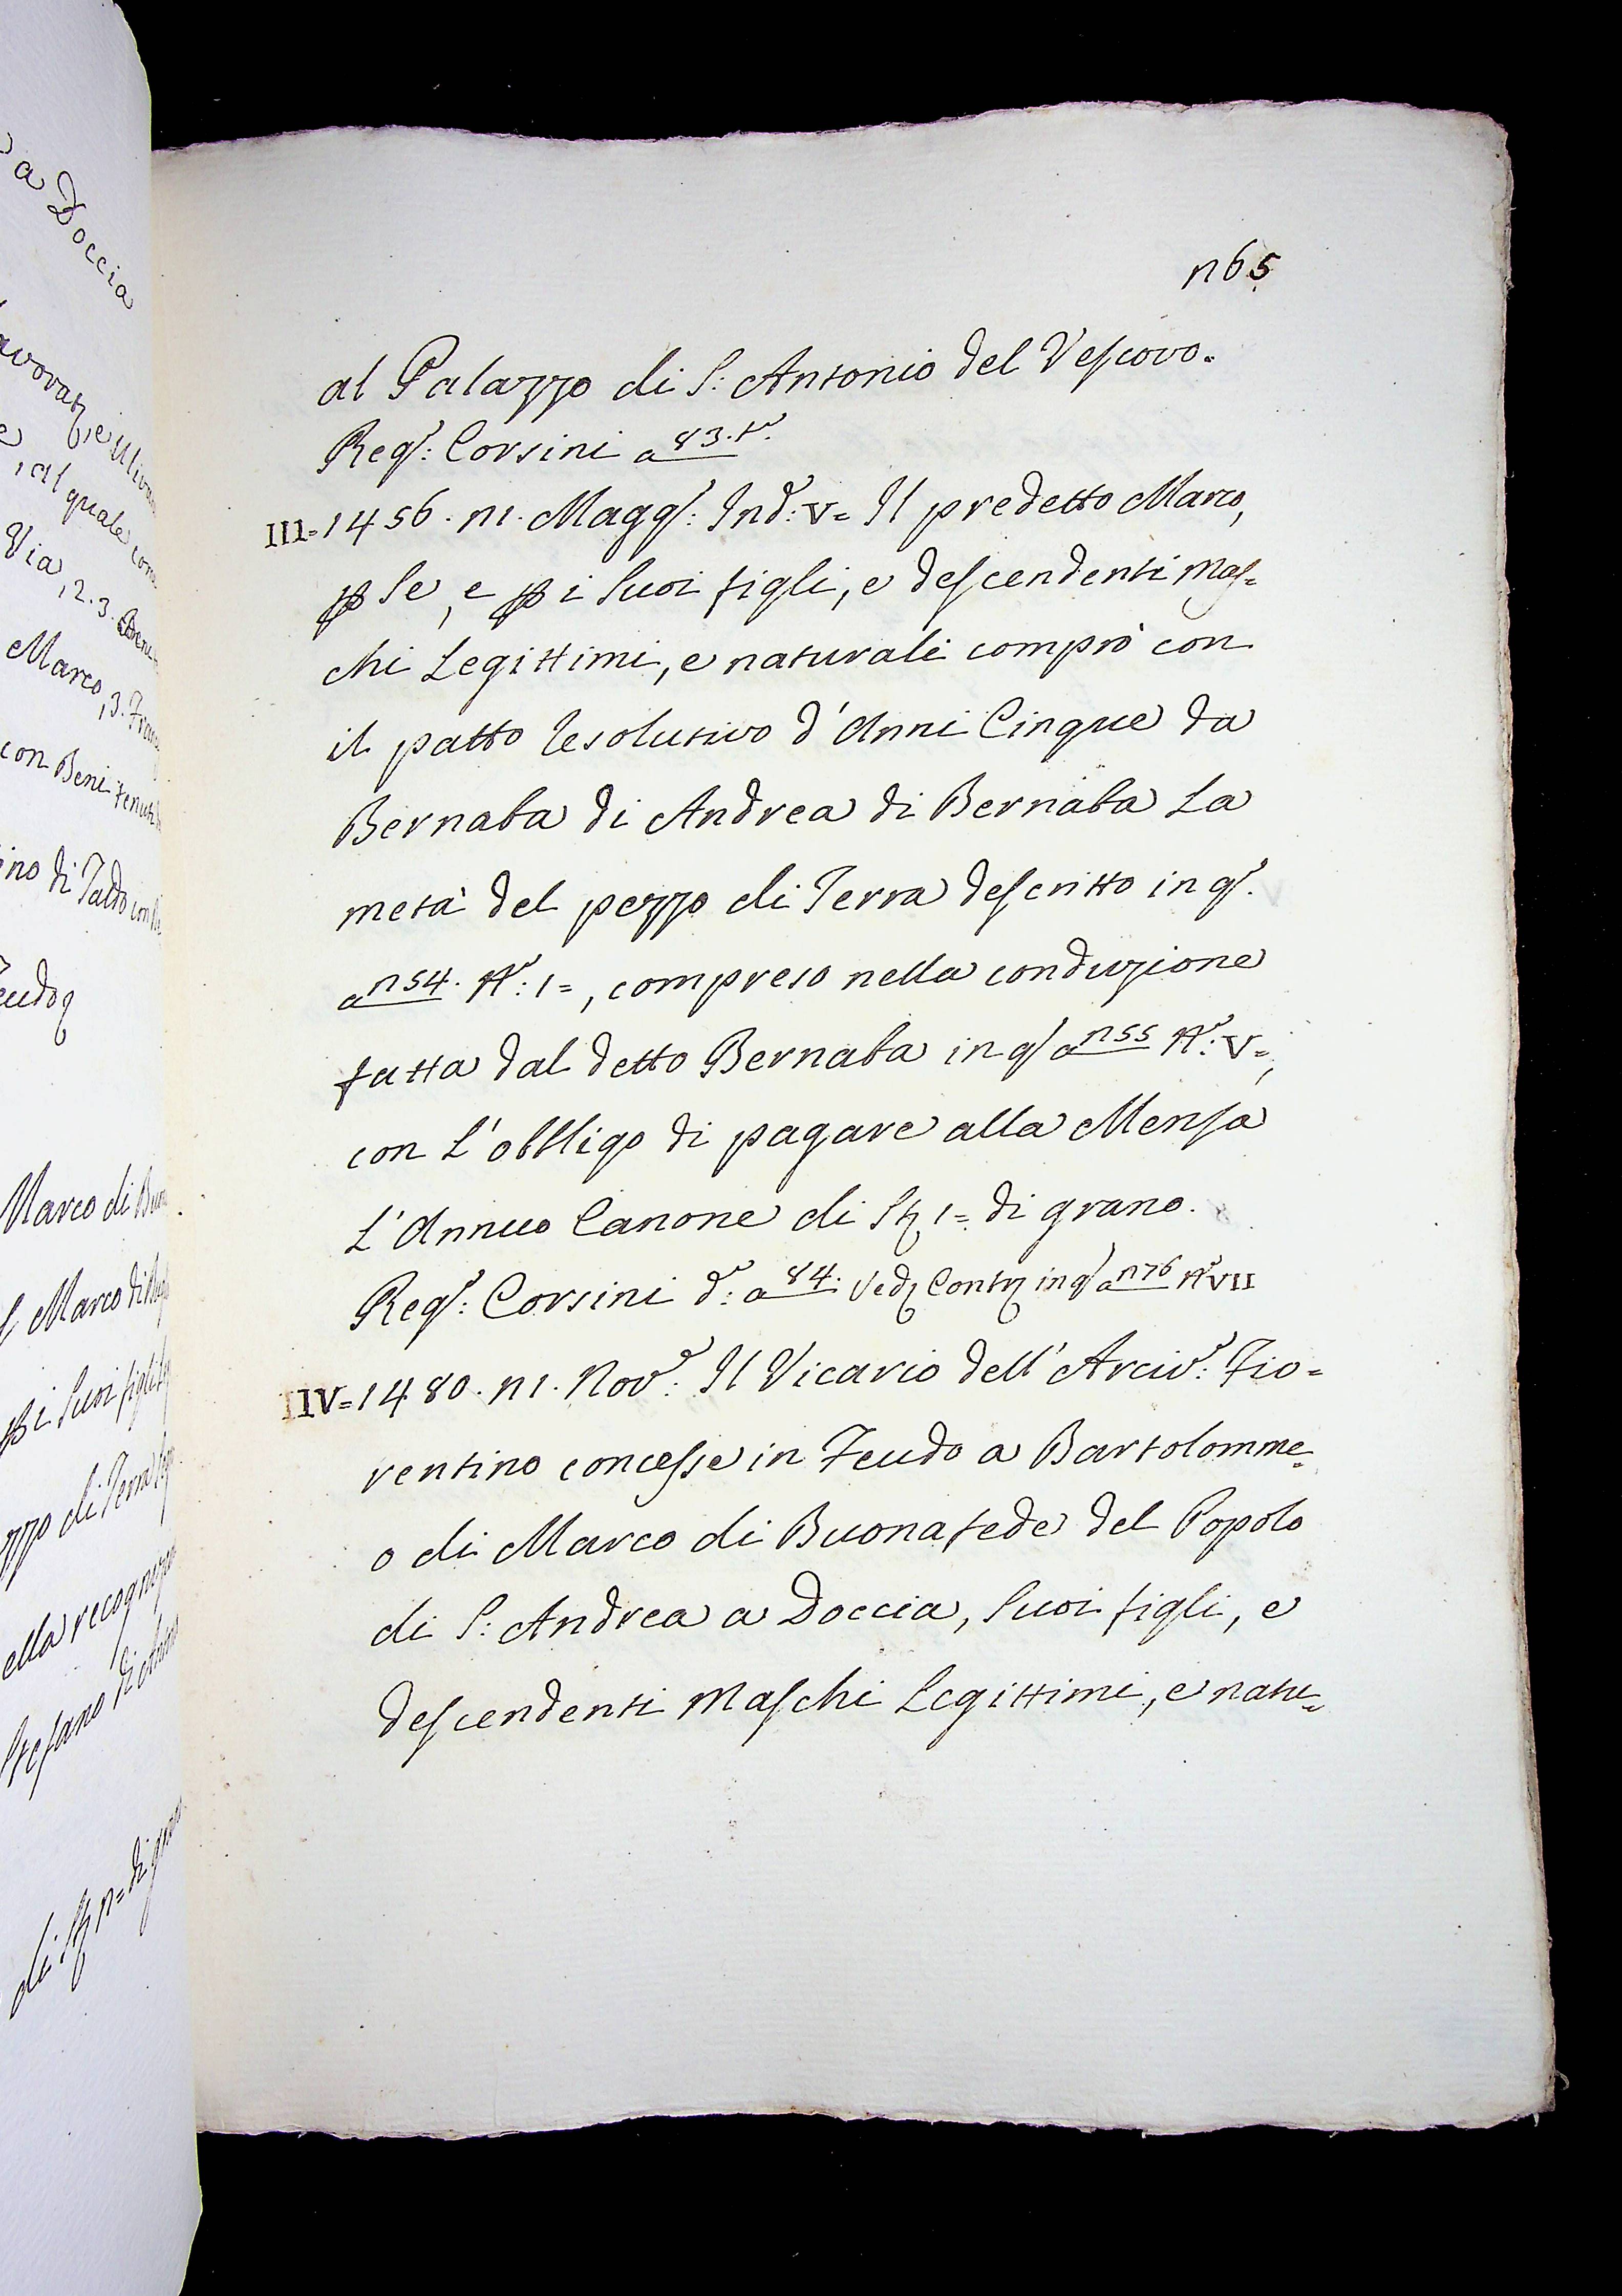 a Doccia
al quale con
Via, 2. 3. Beni
Marco, 3. Fran
con Beni tenuti
ino di Taddo con
eudo
Marco di Buon
Marco di
ꝑ i Suoi figli
zzo di Terra
ella recogniz
Stefano di
di grano
265
al Palazzo di S: Antonio del Vescovo.
Regꝰ: Corsini a 83.tº.
III=1456. 21. Maggº: Indº: V= Il predetto Marco,
ꝑ Se, e ꝑ i Suoi figli, e descendenti Mas=
chi Legittimi, e naturali comprò con
il patto resolutivo d'Anni Cinque da
Bernaba di Andrea di Bernaba La
metà del pezzo di Terra descritto in qº.
a 254. Nº: 1=, compreso nella conduzione
fatta dal detto Bernaba in qº a 255 Nº: V=,
con L'obbligo di pagare alla Mensa
L'Annuo Canone di St 1= di grano.
Regº: Corsini dº: a 84. Ved Cont in qº a 276 Nº VII
IV=1480. 21. Novº: Il Vicario dell'Arcivº: Fio=
rentino concesse in Feudo a Bartolomme=
o di Marco di Buonafede del Popolo
di S: Andrea a Doccia, Suoi figli, e
descendenti Maschi Legittimi, e natu=